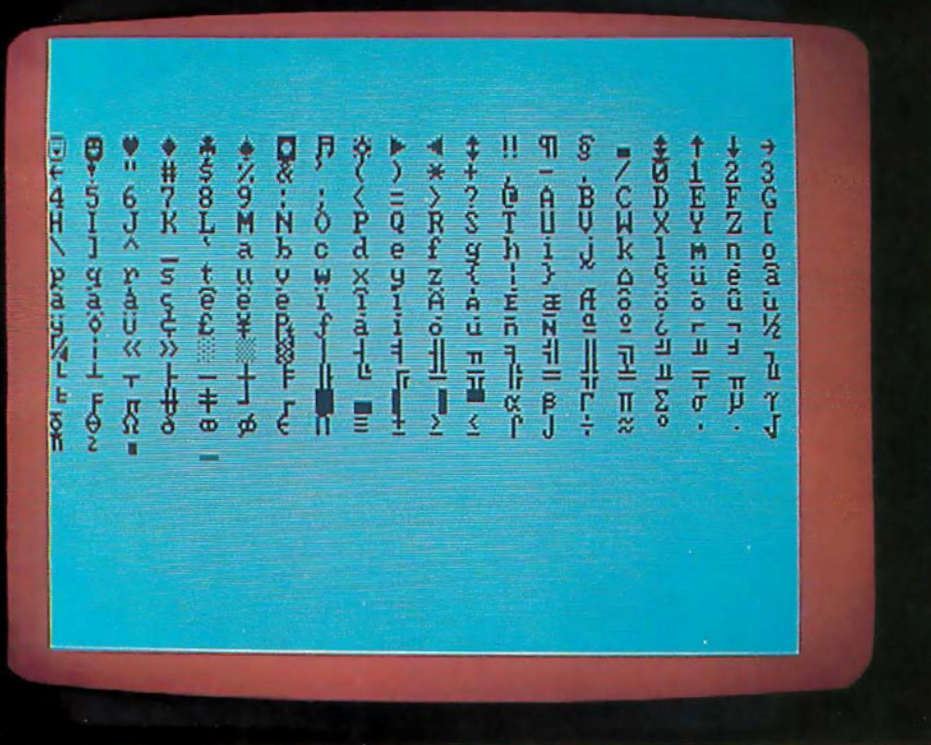 ☺ ☻ ♥ ♦ ♣ ♠ ◘ ♫ ☼ ► ◄ ↕ ‼ ¶ § ▬ ↨ ↑ ↓ →
← ! " # $ % & ' ( ) * + , - . / 0 1 2 3
4 5 6 7 8 9 : ; < = > ? @ A B C D E F G
H I J K L M N O P Q R S T U V W X Y Z [
\ ] ^ _ ` a b c d e f g h i j k l m n o
p q r s t u v w x y z { ¦ } ~ ⌂ Ç ü é â
ä à å ç ê ë è ï î ì Ä Å É æ Æ ô ö ò û ù
ÿ Ö Ü ¢ £ ¥ ₧ ƒ á í ó ú ñ Ñ ª º ¿ ⌐ ¬ ½
¼ ¡ « » ░ ▒ ▓ │ ┤ ╡ ╢ ╖ ╕ ╣ ║ ╗ ╝ ╜ ╛ ┐
└ ┴ ┬ ├ ─ ┼ ╞ ╟ ╚ ╔ ╩ ╦ ╠ ═ ╬ ╧ ╨ ╤ ╥ ╙
╘ ╒ ╓ ╫ ╪ ┘ ┌ █ ▄ ▌ ▐ ▀ α β Γ π Σ σ µ τ
Φ Θ Ω δ ∞ φ ε ∩ ≡ ± ≥ ≤ ⌠ ⌡ ÷ ≈ ° ∙ · √
ⁿ ² ■ _